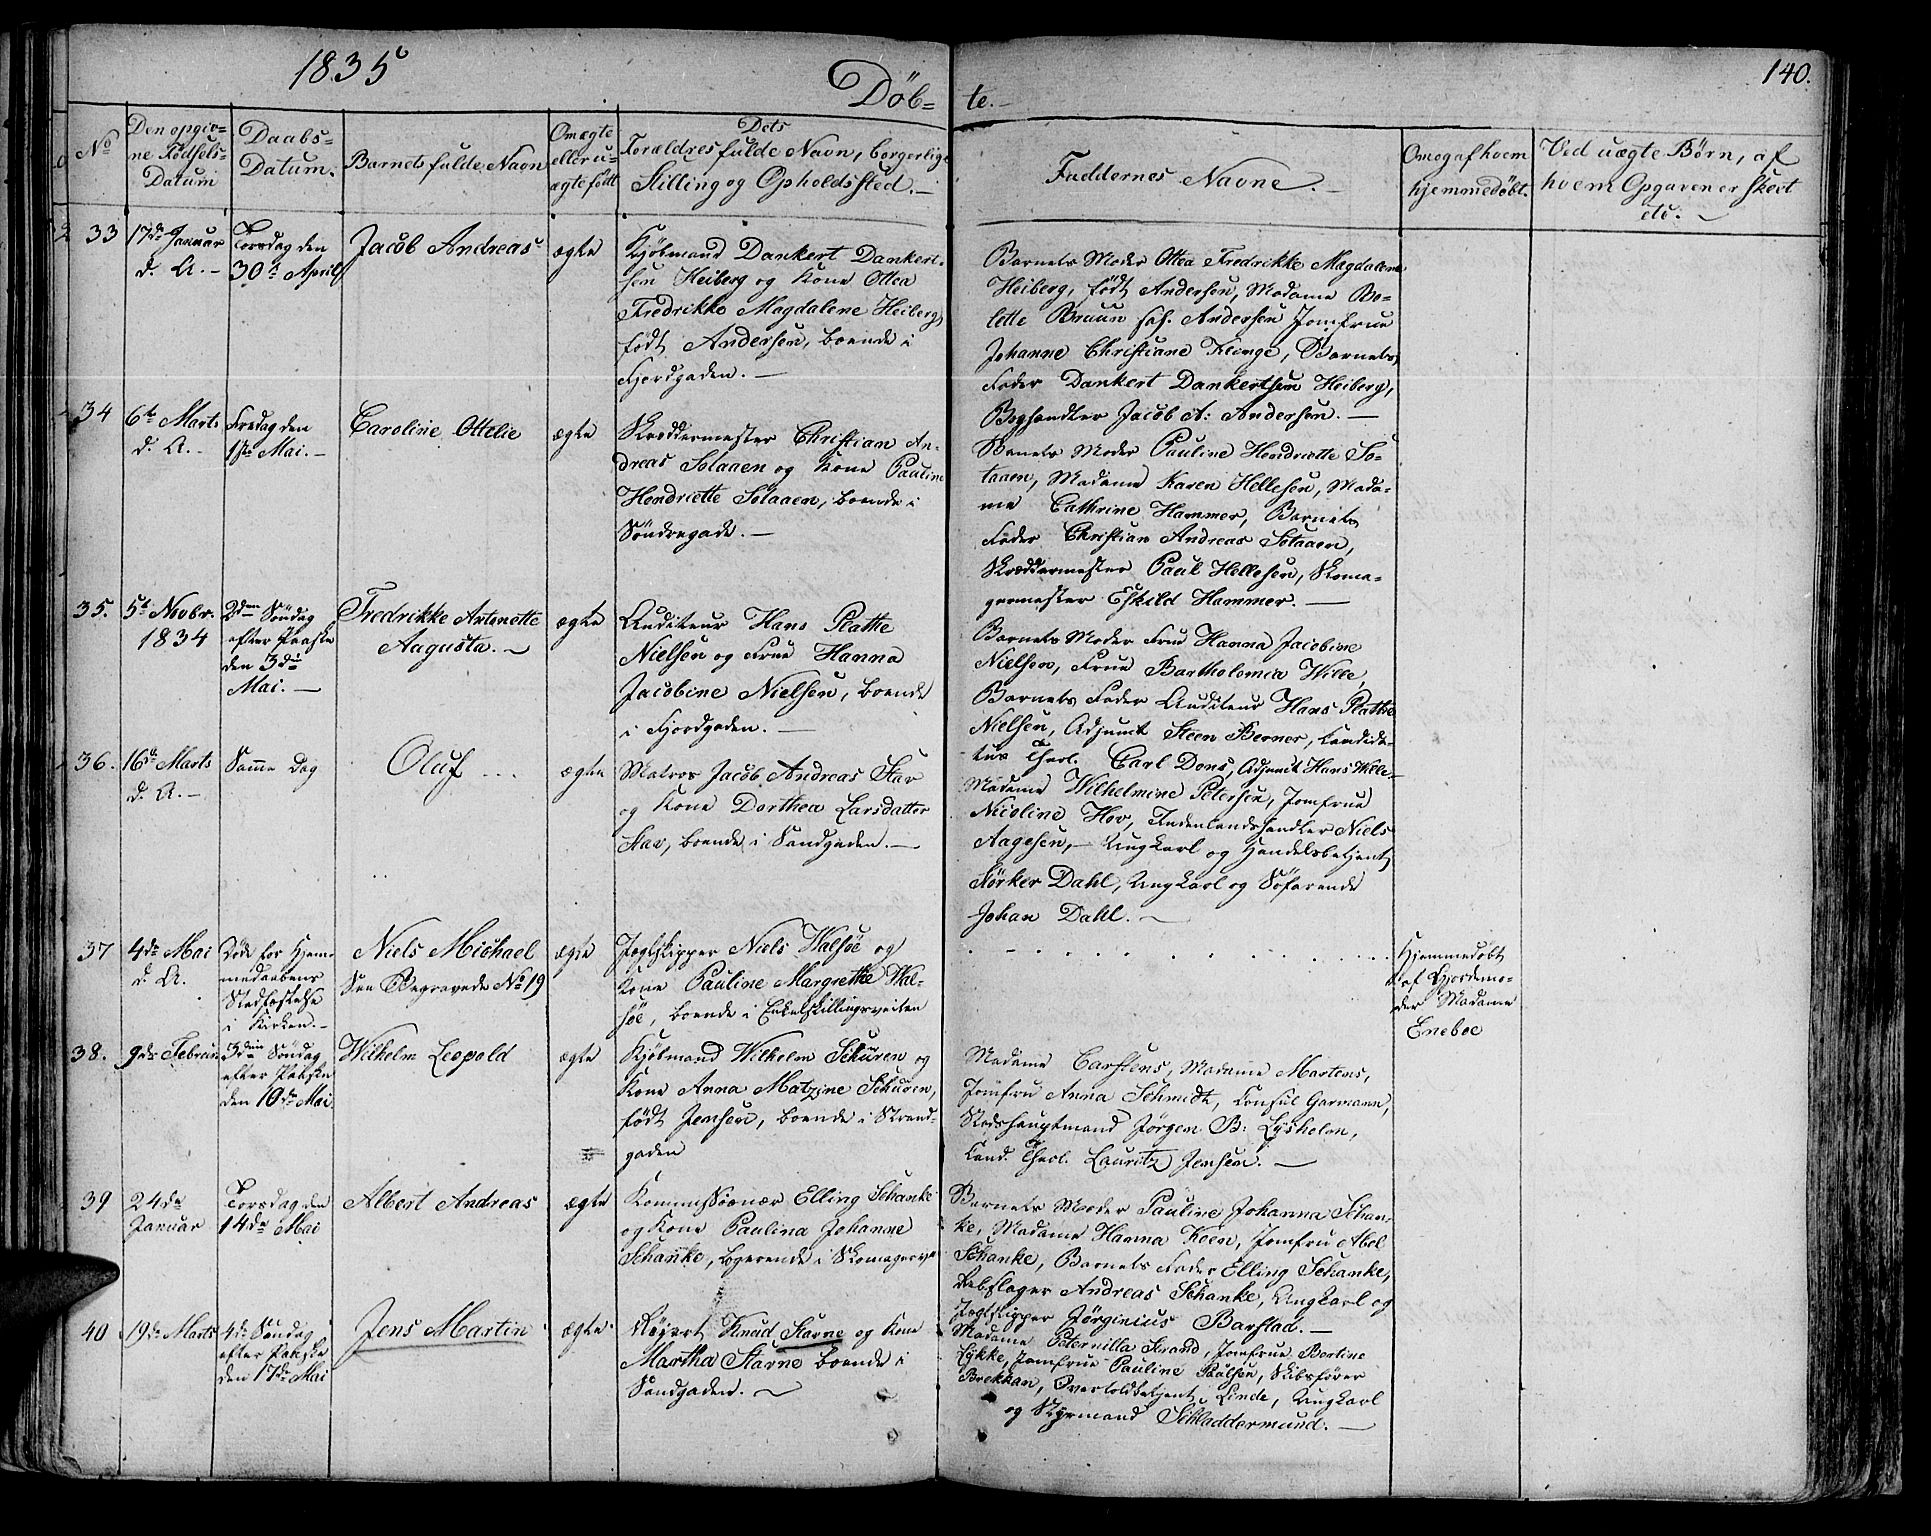 1835
Döb=
te.
140.
No
Den opgiv=
ne Födsels=
Datum
Daabs=
Datum.
Barnets fulde Navn
Om ægte
eller u=
ægte födt
Dets
Forældres fulde Navn, borgerlige
Stilling og Opholdssted.
Faddernes Navne.
Om og af hvem
hjemmedöbt.
Ved uægte Börn, af
hvem Opgaven er skeet
etc.
33
17de Januar
d. A.
Torsdag den
30te April
Jacob Andreas
ægte
Kjöbmand Dankert Dankert=
sen Heiberg og Kone Ottea
Fredrikke Magdalene Heiberg,
födt Andersen, boende i
Fjordgaden.
Barnets Moder Ottea Fredrikke Magdalene
Heiberg, födt Andersen, Madame Bo=
lette Bruun föd. Andersen Jomfrue
Johanne Christiane Klinge, Barnets
Fader Dankert Dankertsen Heiberg,
Boghandler Jacob A: Andersen.
34
6te Marts
d. A.
Fredag den
1ste Mai.
Caroline Ottelie
ægte
Skræddermester Christian An=
dreas Solaaen og Kone Pauline
Hendriette Solaaen, boende i
Söndregade.
Barnets Moder Pauline Hendriette So=
laaen, Madame Karen Hellesen, Mada=
me Cathrine Hammer, Barnets
Fader Christian Andreas Solaaen,
Skræddermester Paul Hellesen, Skoma=
germester Eskild Hammer.
35.
5te Novbr.
1834
2den Söndag
efter Paaske
den 3die
Mai.
Fredrikke Antonette
Augusta.
ægte
Auditeur Hans Plathe
Nielsen og Frue Hanna
Jacobine Nielsen, boende
i Fjordgaden.
Barnets Moder Frue Hanna Jacobine
Nielsen, Frue Bartholomea Wille,
Barnets Fader Auditeur Hans Plathe
Nielsen, Adjunct Steen Berner, Candida=
tus Theol. Carl Dons, Adjunct Hans Wille.
36.
16de Marts
d. A.
Samme Dag
Oluf
ægte
Matros Jacob Andreas Stav
og Kone Dorthea Larsdatter
Stav, boende i Sandgaden.
Madame Wilhelmine Petersen, Jomfrue
Nicoline Hov, Indenlandshandler Niels
Aagesen, Ungkarl og Handelsbetjent
Störker Dahl, Ungkarl og Söfarende
Johan Dahl.
37
4de Mai
d. A.
Döde for Hjem=
medaabens
Stadfæstelse
i Kirken.
Niels Michael
See Begravede No 19
ægte
Jægtskipper Niels Walsöe og
Kone Pauline Margrethe Wal=
söe, boende i Enkelskillingsveiten
Hjemmedöbt
af Gjordemo=
der Madame
Eneboe
38.
9de Februar
3die Söndag
efter Paaske
den 10de Mai
Wilhelm Leopold
ægte
Kjöbmand Wilhelm Schuren og
Kone Anna Matzine Schuren,
födt Jensen, boende i Strand=
gaden
Madame Carstens, Madame Martens,
Jomfru Anna Schmidt, Consul Garmann,
Stadshauptmand Jörgen B: Lysholm,
Cand. Theol. Lauritz Jensen.
39
24de
Januar
Torsdag den
14de Mai
Albert Andreas
ægte
Kommissionær Elling Schanke
og Kone Paulina Johanne
Schanke, logerende i Skomagerv
Barnets Moder Pauline Johanna Schan=
ke, Madame Hanna Koen, Jomfru Abel
Schanke, Barnets Fader Elling Schanke,
Rebslager Andreas Schanke, Ungkarl og
Jægtskipper Jörginius Barstad.
40
19de Marts
4de Söndag
efter Paaske
den 17de Mai
Jens Martin
ægte
Knud Stavne og Kone
Martha Stavne boende i
Sandgaden.
Madame Peternilla Strand, Jomfrue Bertine
Lykke, Jomfrue Pauline Paulsen, Skibsförer
Brekkan, Overtoldbetjent Linde, Ungkarl
og Styrmand Schladdermund.